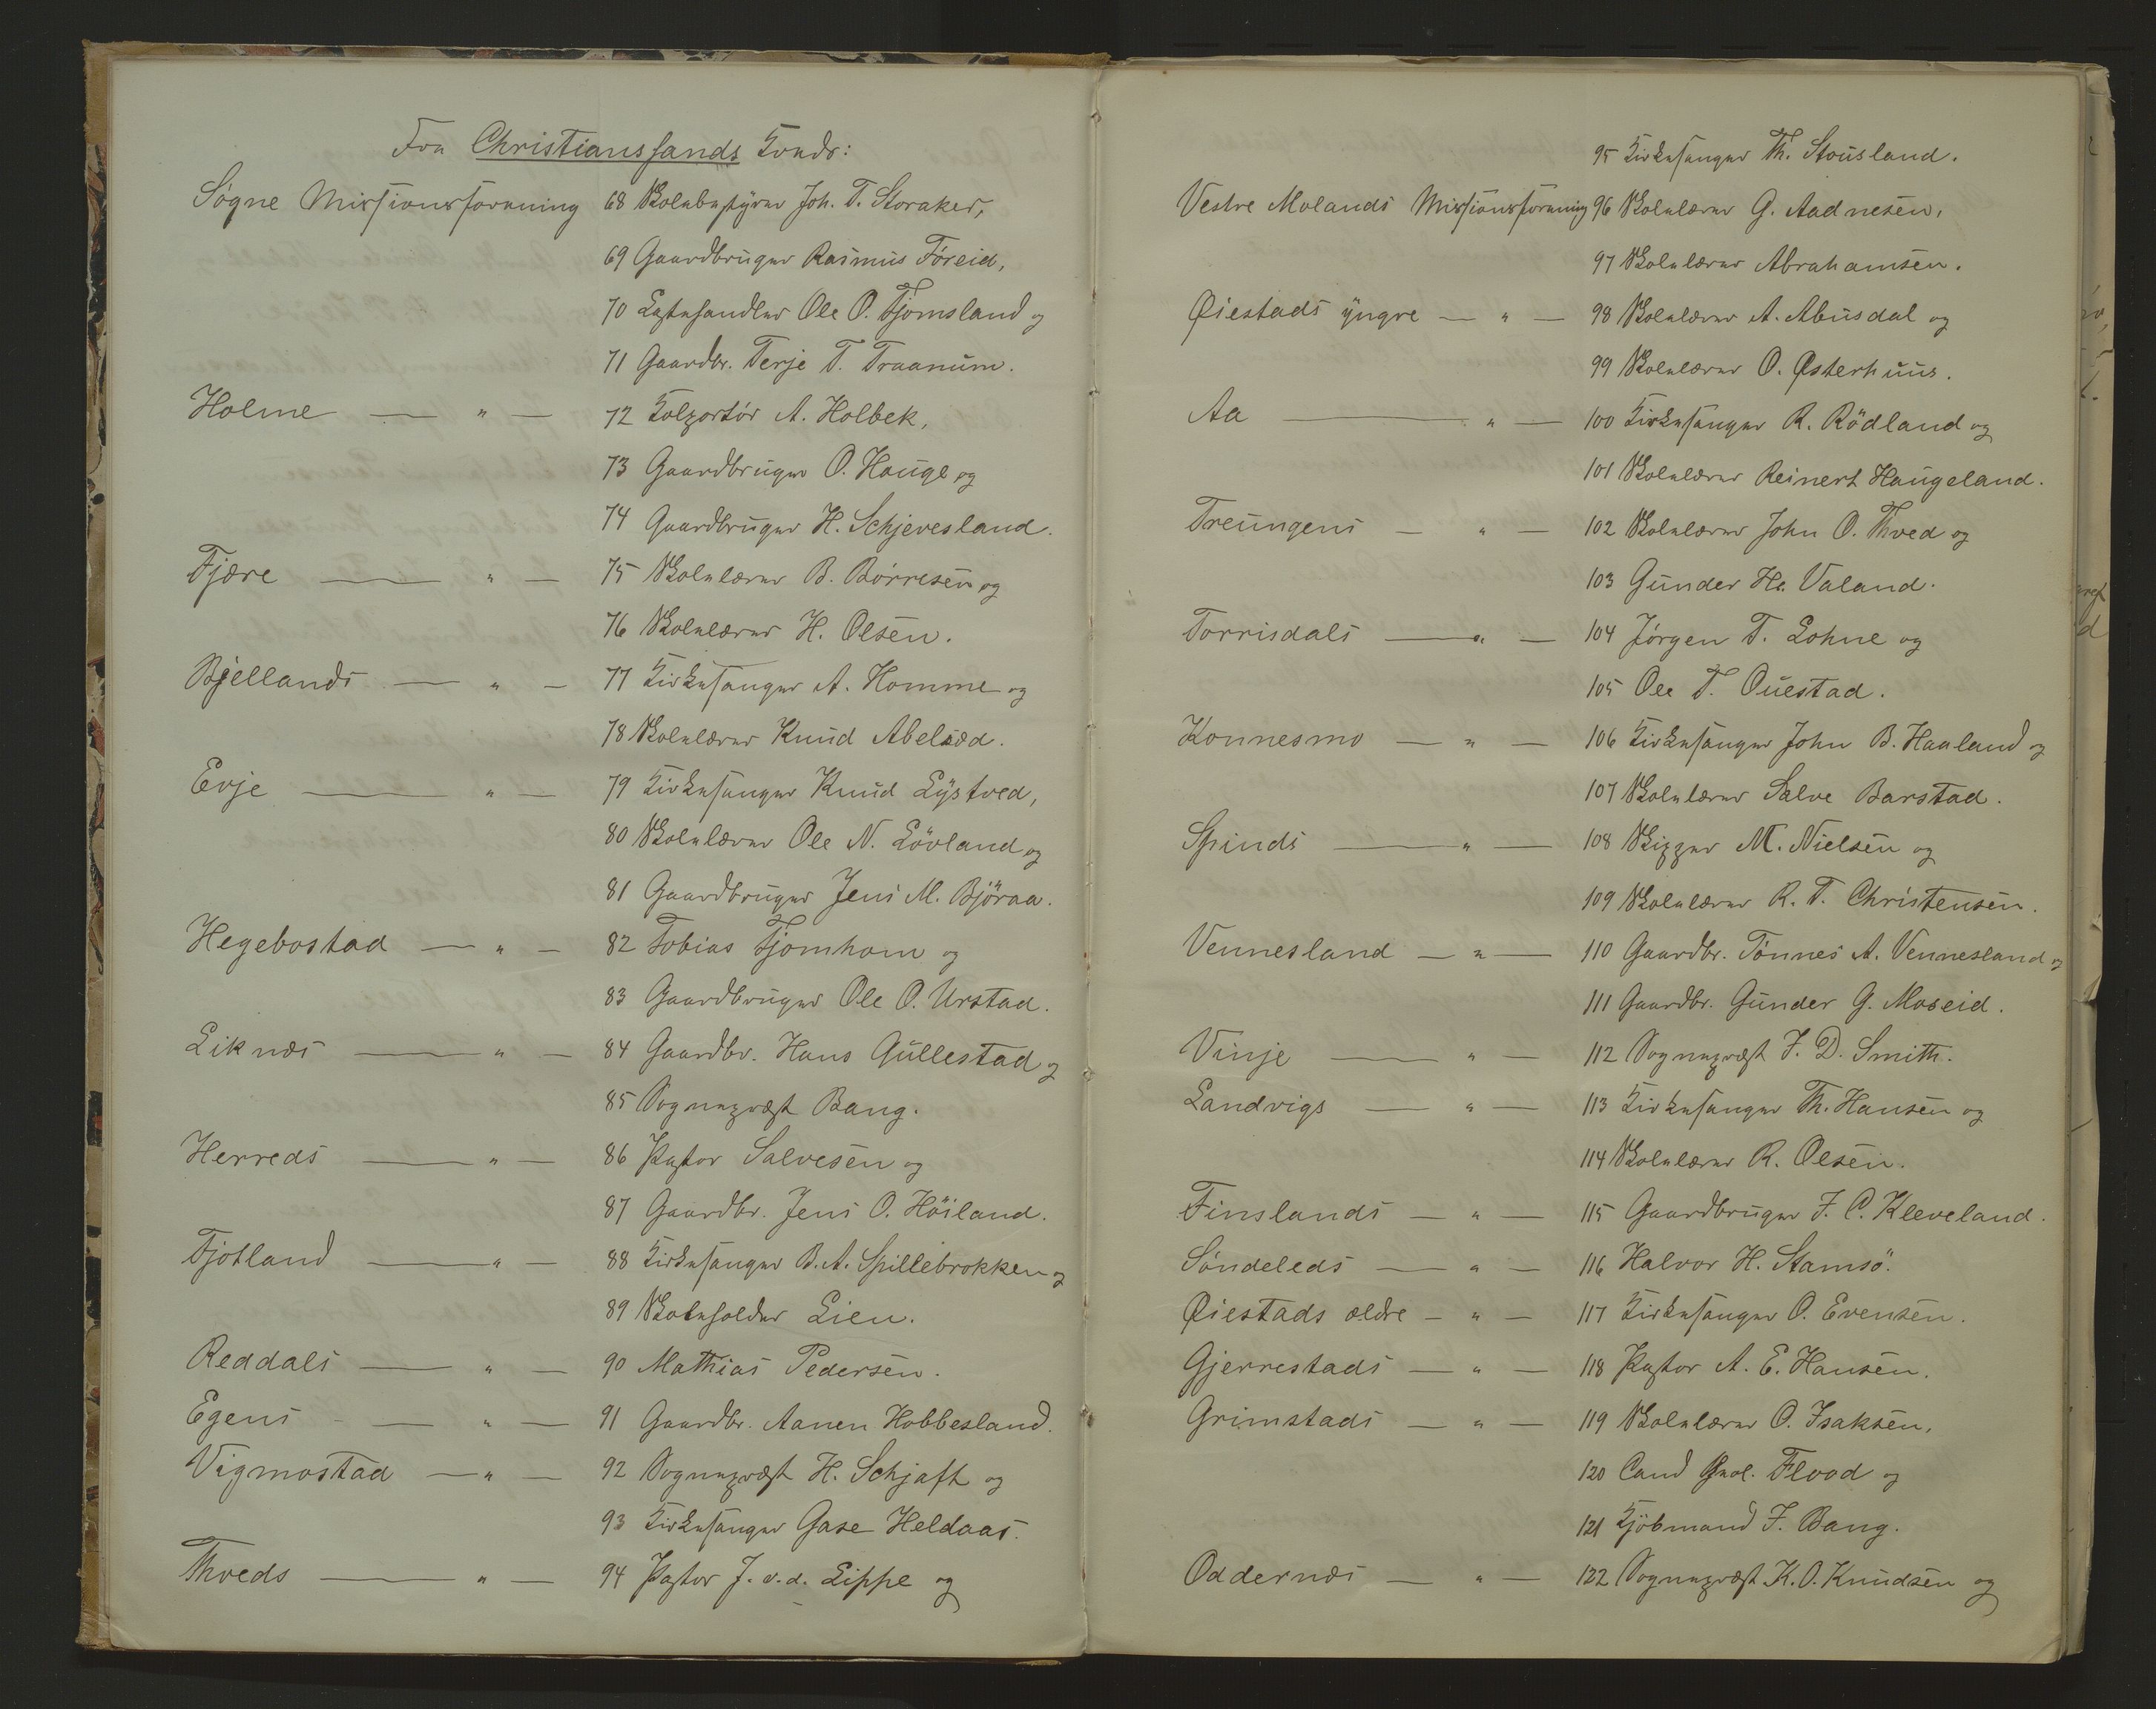 Fra Christianssands Kreds:
Søgne Missionsforening 68 Skolebestyrer Joh. T. Storaker,
69 Gaardbruger Rasmus Föreid,
70 Ole O. Fjomsland og
71 Gaardbr. Terje T. Traanum.
Holme — " — 72 Kolportör A. Holbek,
73 Gaardbruger O. Hauge og
74 Gaardbruger H. Schjevesland.
Fjære — " — 75 Skolelærer B. Börresen og
76 Skolelærer H. Olsen.
Bjellands — " — 77 Kirkesanger A. Homme og
78 Skolelærer Knud Abelsæd.
Evje — " — 79 Kirkesanger Knud Lystved,
80 Skolelærer Ole N. Lövland og
81 Gaardbruger Jens M. Björaa.
Hegebostad — " — 82 Tobias Fjomhom og
83 Gaardbruger Ole O. Urstad.
Liknæs — " — 84 Gaardbr. Hans Gullestad og
85 Sognepræst Bang.
Herreds — " — 86 Pastor Salvesen og
87 Gaardbr. Jens O. Höiland.
Fjotland — " — 88 Kirkesanger B. A. Spillebrokken og
89 Skoleholder Lien.
Reddals — " — 90 Mathias Pedersen.
Egens — " — 91 Gaardbr. Aanen Hobbesland.
Vigmostad — " — 92 Sognepræst H. Schjaft og
93 Kirkesanger Gase Heldaas.
Thveds — " — 94 Pastor J. v. d. Lippe og
95 Kirkesanger Th. Stousland.
Vestre Molands Missionsforening 96 Skolelærer G. Aadnesen,
97 Skolelærer Abrahamsen.
Øiestads yngre — " — 98 Skolelærer A. Abusdal og
99 Skolelærer O. Østerhuus.
Aa — " — 100 Kirkesanger R. Rödland og
101 Skolelærer Reinert Haugeland.
Treungens — " — 102 Skolelærer John O. Thved og
103 Gunder Hs. Valand.
Torrisdals — " — 104 Jørgen T. Lohne og
105 Ole T. Ouestad.
Konnesmo — " — 106 Kirkesanger John B. Haaland og
107 Skolelærer Salve Barstad.
Spinds — " — 108 Skipper M. Nielsen og
109 Skolelærer R. T. Christensen.
Vennesland — " — 110 Gaardbr. Tønnes A. Vennesland og
111 Gaardbr. Gunder G. Moseid.
Vinje — " — 112 Sognepræst J. D. Smith.
Landvigs — " — 113 Kirkesanger Th. Hansen og
114 Skolelærer R. Olsen.
Finslands — " — 115 Gaardbruger J. C. Kleveland.
Søndeleds — " — 116 Halvor H. Stamsö.
Øiestads ældre — " — 117 Kirkesanger O. Evensen.
Gjerrestads — " — 118 Pastor A. E. Hansen.
Grimstads — " — 119 Skolelærer O. Isaksen,
120 Cand theol. Flood og
121 Kjöbmand J. Bang.
Oddernæs — " — 122 Sognepræst K. O. Knudsen og